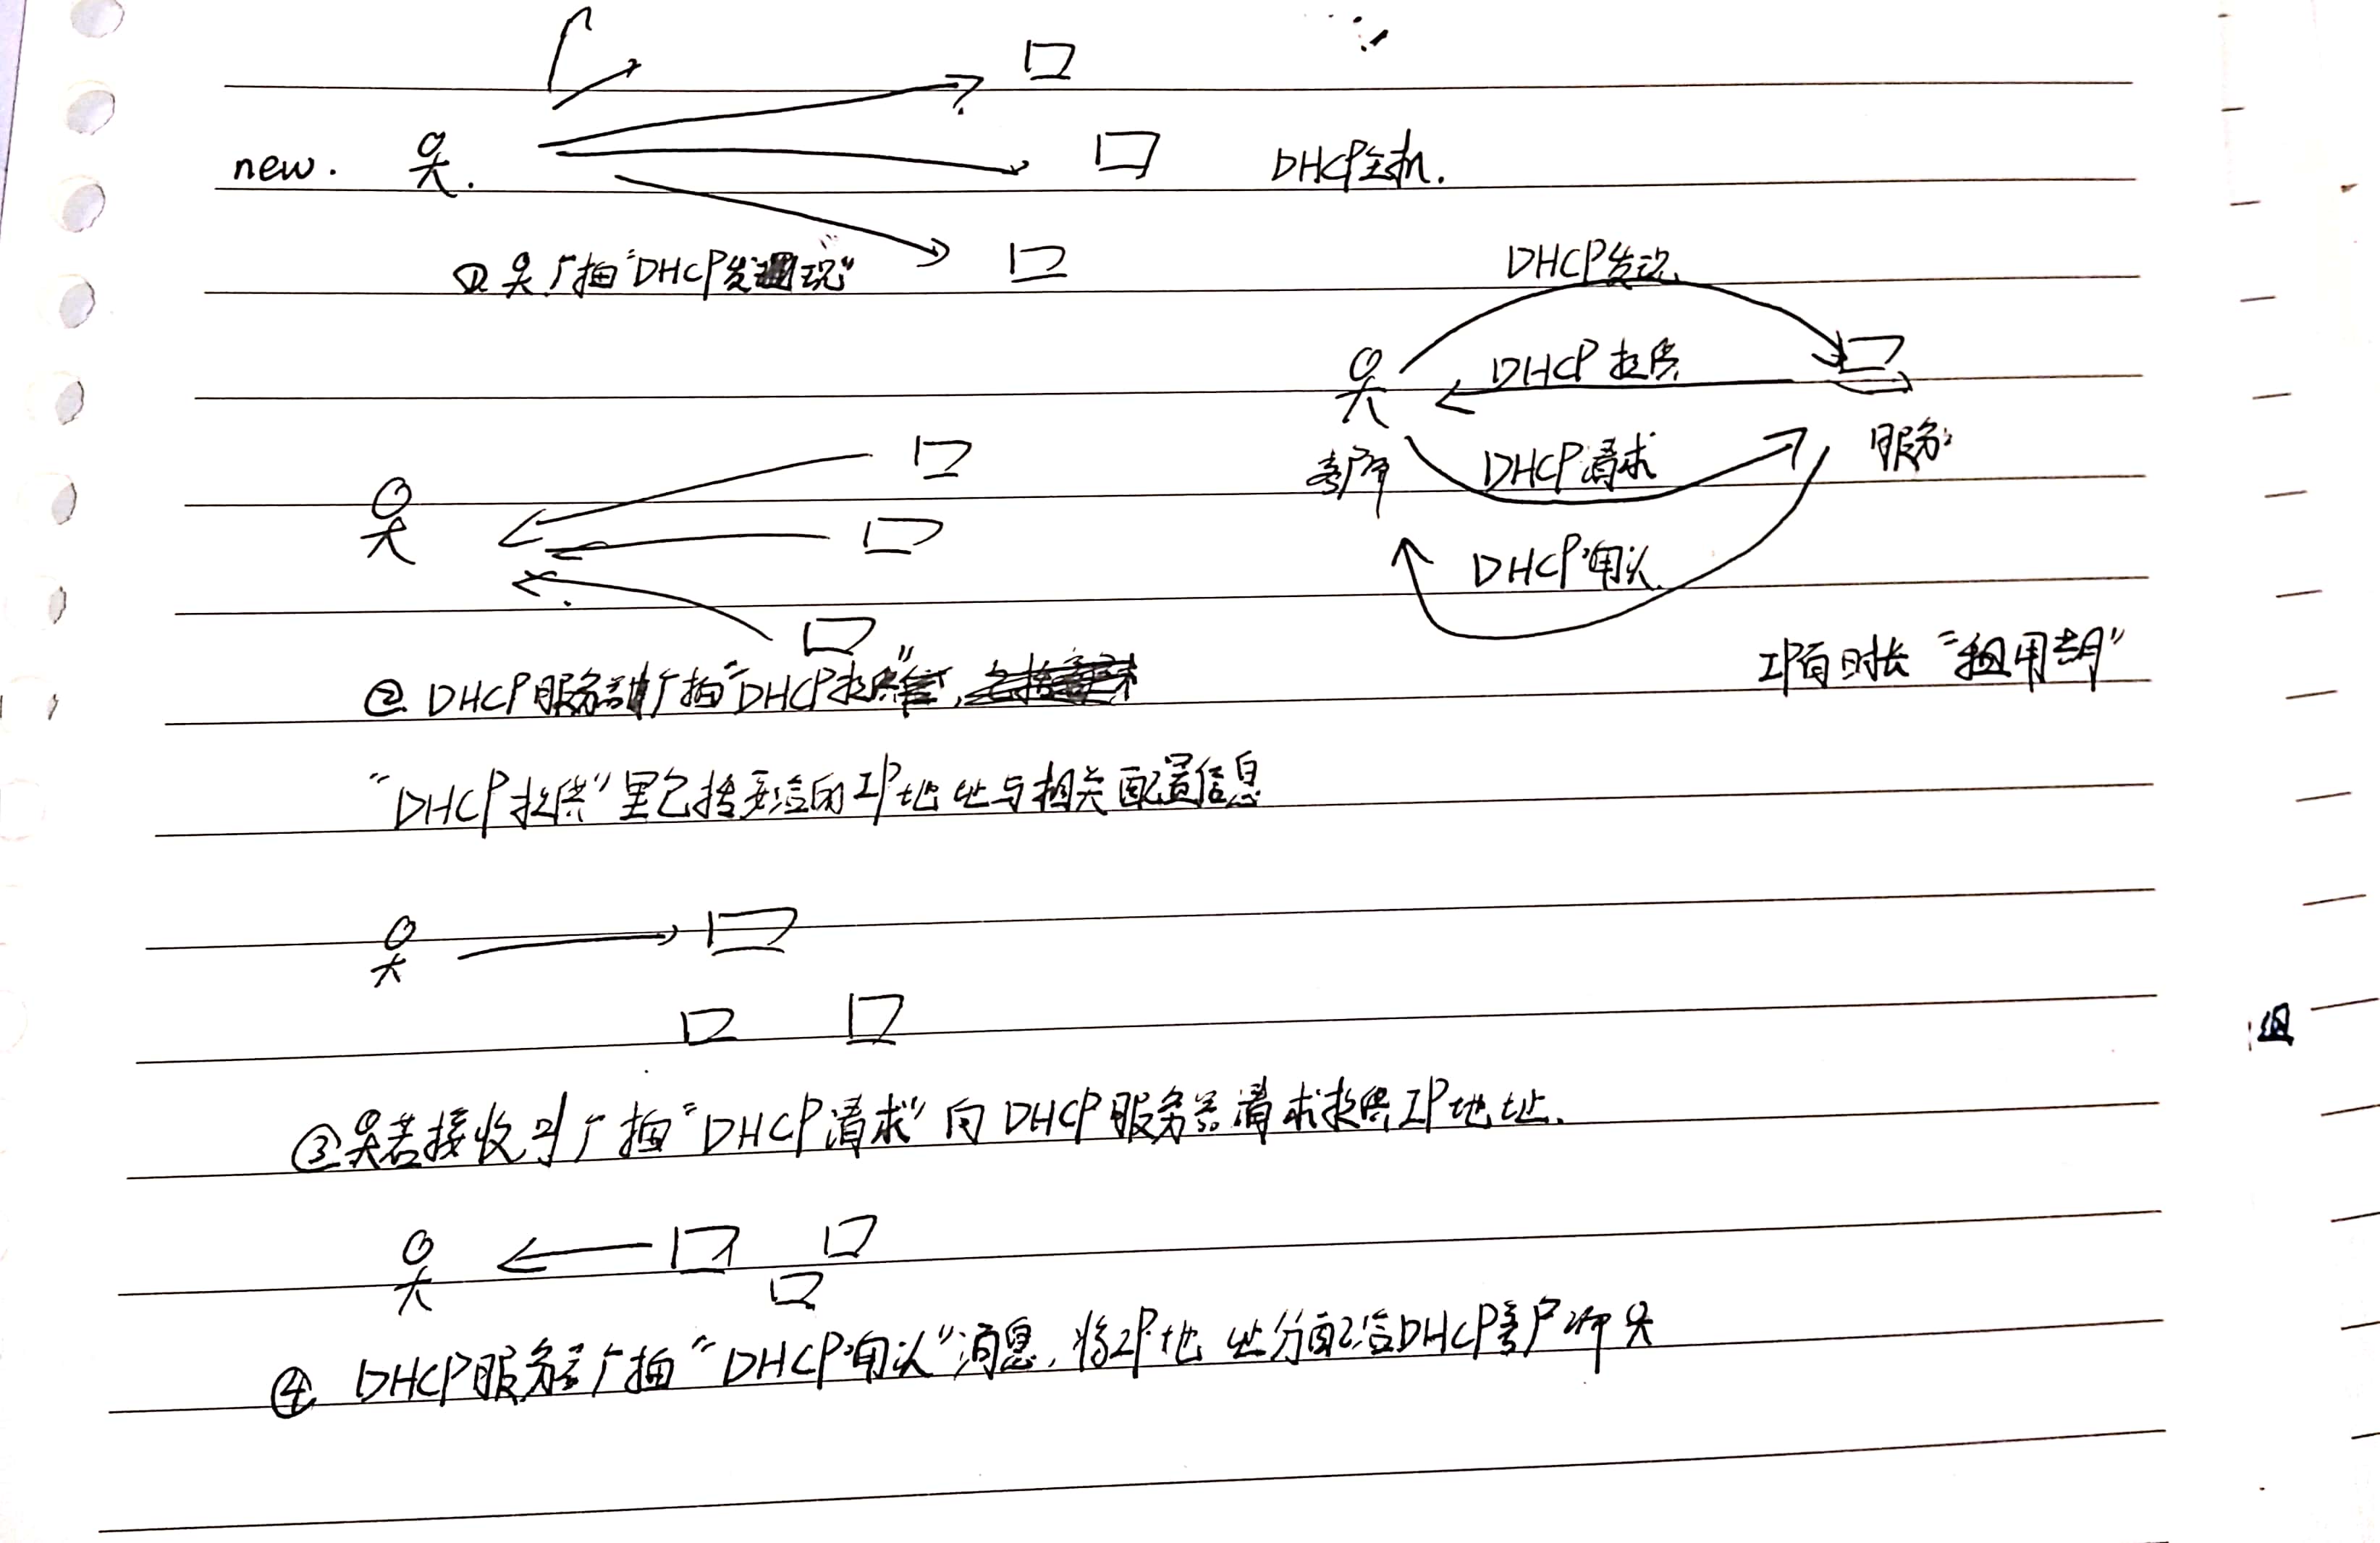 new.
DHCP主机.
① 广播“DHCP发现”
DHCP发现
DHCP提供
客户
服务
DHCP请求
DHCP确认
IP有时长“租用期”
② DHCP服务器广播“DHCP提供”
“DHCP提供”里包括要给的IP地址与相关配置信息
③ 若接收 则广播“DHCP请求”向DHCP服务器请求提供IP地址.
④ DHCP服务器广播“DHCP确认”消息,将IP地址分配给DHCP客户